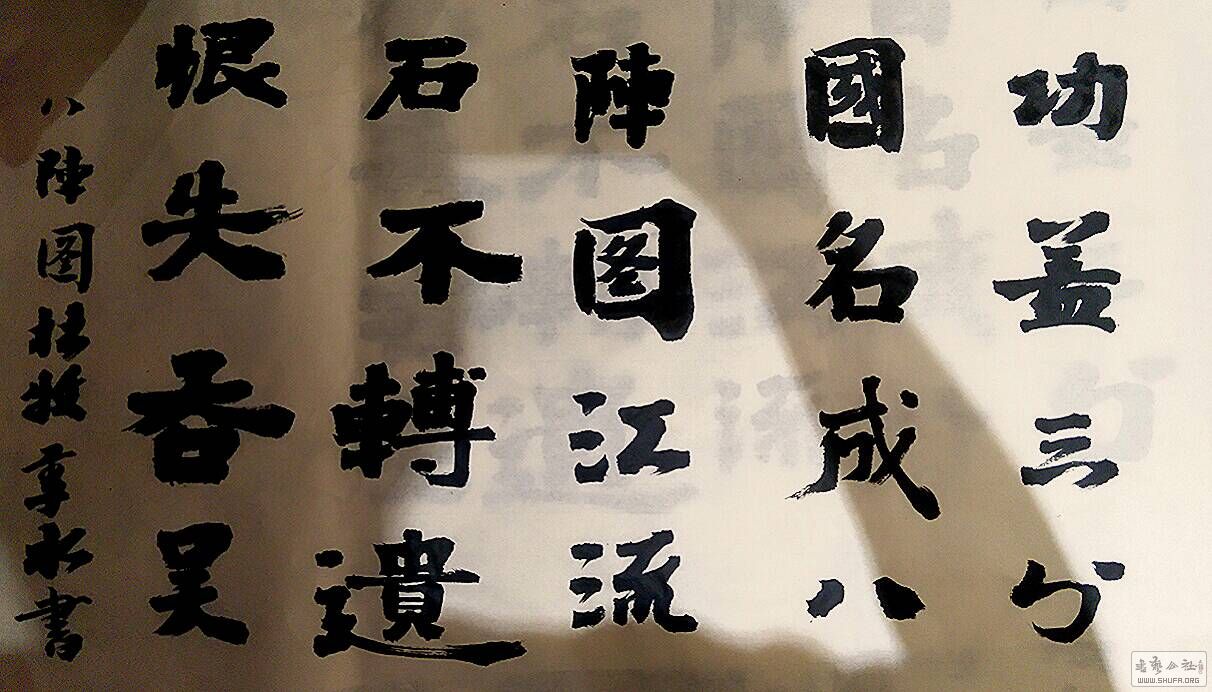 功盖三分
國名成八
陣图江流
石不轉遺
恨失吞吴
八陣图杜牧水書
书艺公社
WWW.SHUFA.ORG